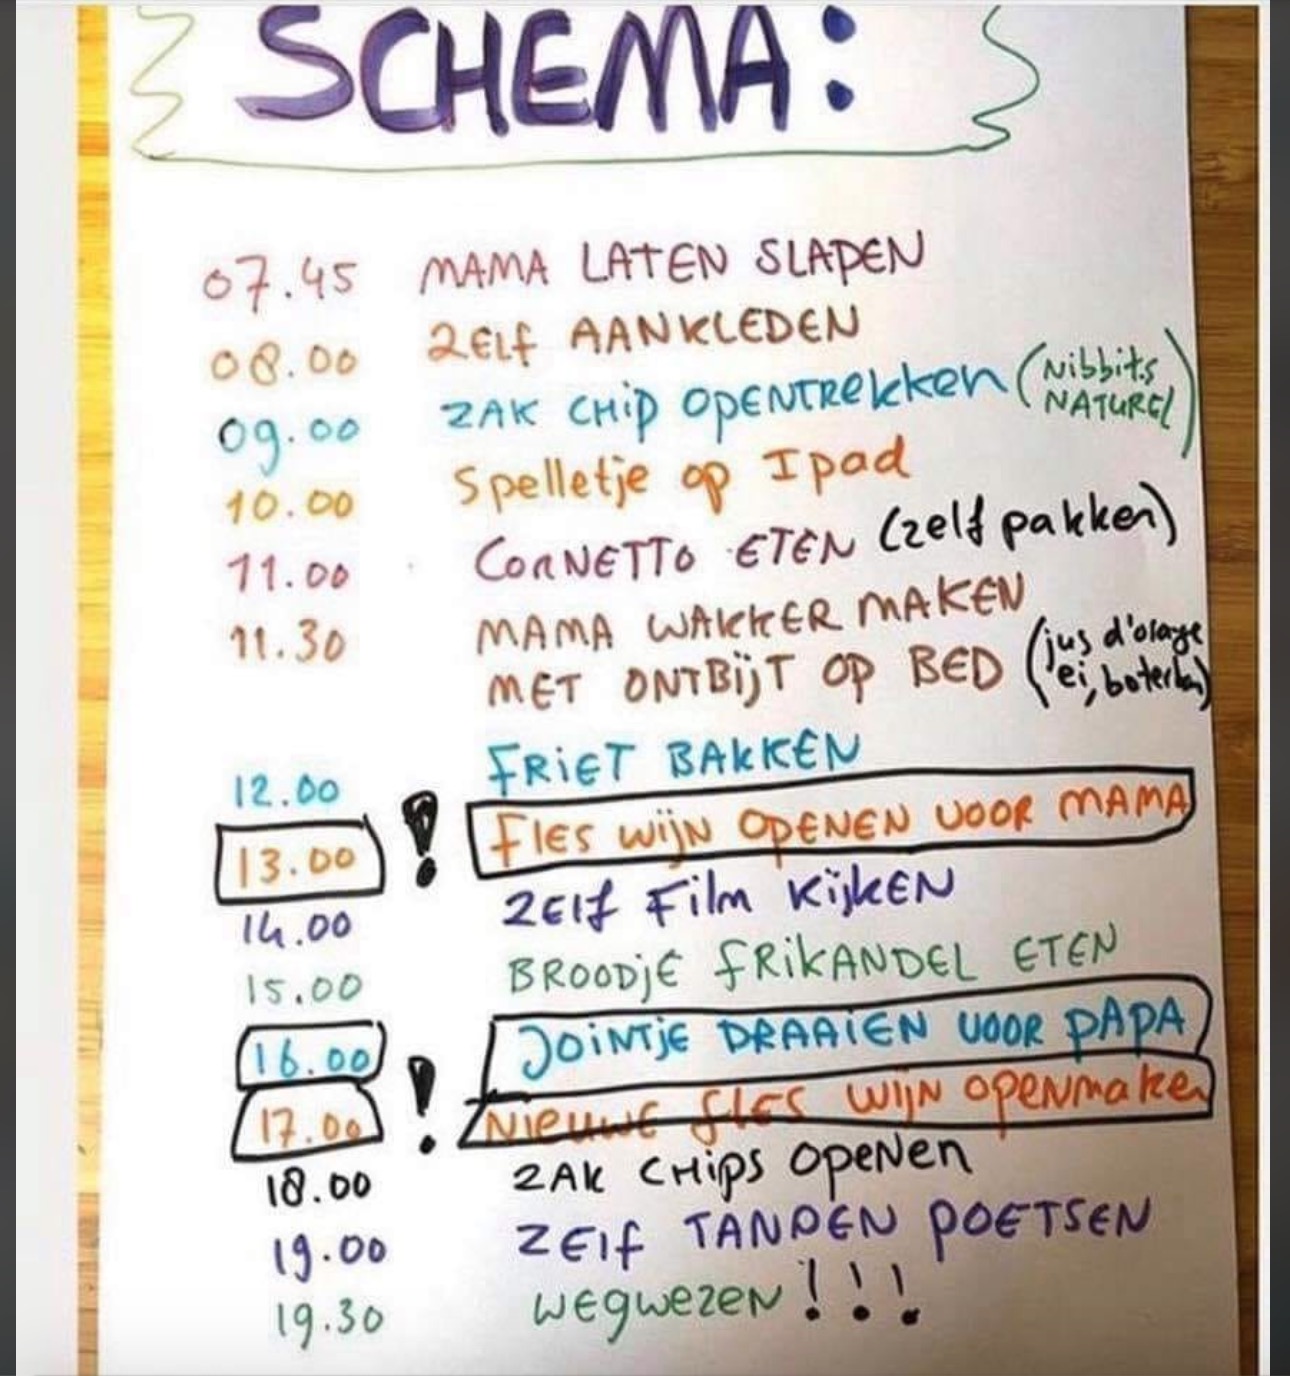 SCHEMA:
07.45 MAMA LATEN SLAPEN
08.00 ZELF AANKLEDEN
09.00 ZAK CHIP OPENTREKKEN (Nibbits
NATUREL)
10.00 Spelletje op Ipad
11.00 CORNETTO ETEN (zelf pakken)
11.30 MAMA WAKKER MAKEN
MET ONTBIJT OP BED (jus d'orange
ei, boterham)
12.00 FRIET BAKKEN
13.00 ! FLES WIJN OPENEN VOOR MAMA
14.00 ZELF FILM KIJKEN
15.00 BROODJE FRIKANDEL ETEN
16.00 JOINTJE DRAAIEN VOOR PAPA
17.00 ! NIEUWE FLES WIJN OPENMAKEN
18.00 ZAK CHIPS OPENEN
19.00 ZELF TANDEN POETSEN
19.30 WEGWEZEN!!!